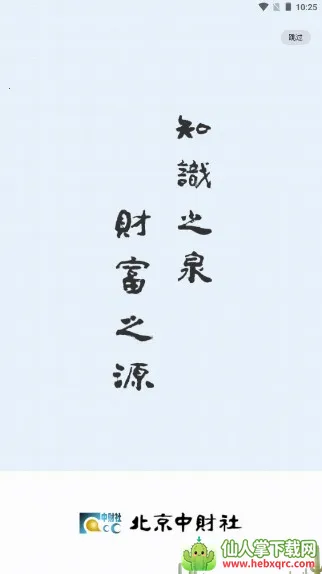 10:25
跳过
知識之泉
財富之源
中财社
CC
北京中財社
仙人掌下载网
www.hebxqrc.com